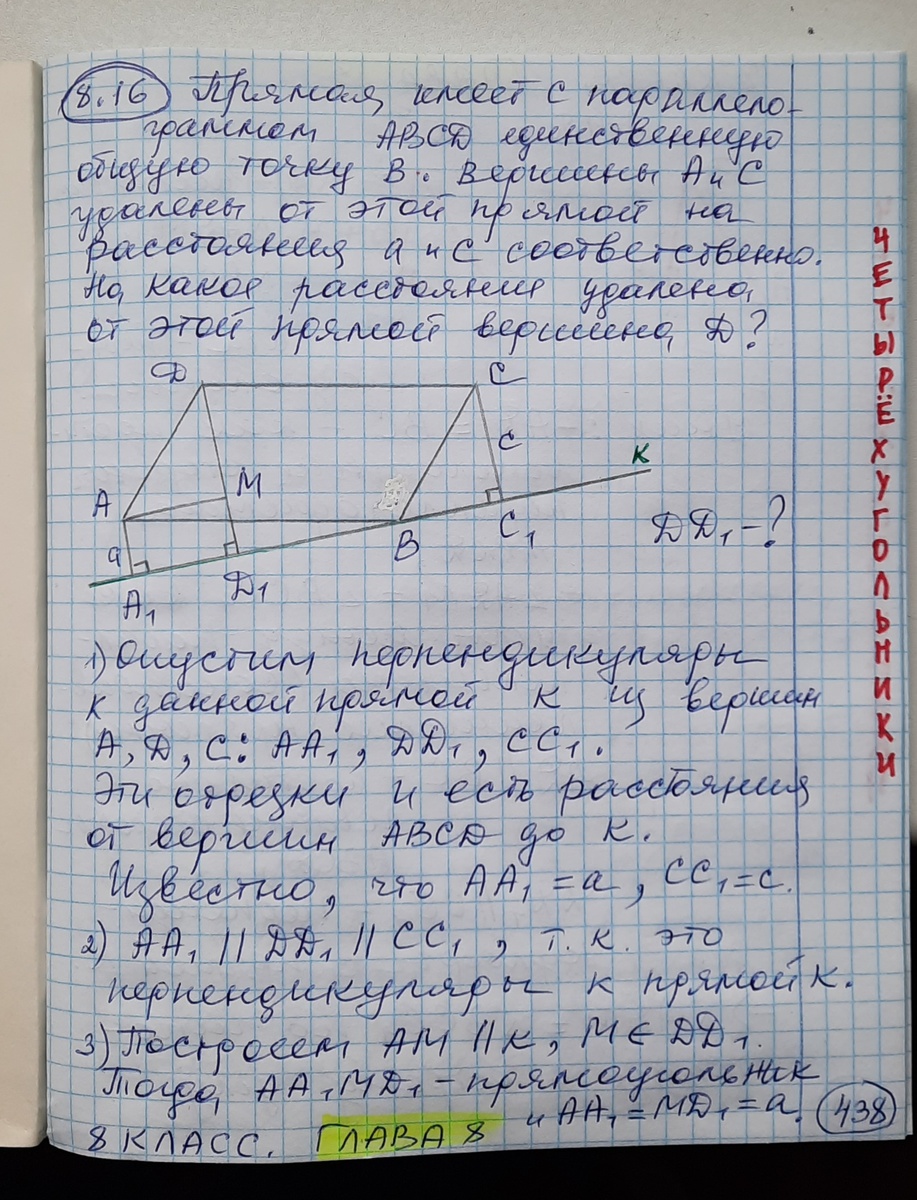 8.16 Прямая имеет с параллело-
граммом ABCD единственную
общую точку B. Вершины A и C
удалены от этой прямой на
расстояния a и c соответственно.
На какое расстояние удалена
от этой прямой вершина D?
D C
A M C K
a B C₁ DD₁ - ?
A₁ D₁
1) Опустим перпендикуляры
к данной прямой K из вершин
A, D, C: AA₁, DD₁, CC₁.
Эти отрезки и есть расстояния
от вершин ABCD до K.
Известно, что AA₁ = a, CC₁ = c.
2) AA₁ || DD₁ || CC₁, т.к. это
перпендикуляры к прямой K.
3) Построем AM || K, M ∈ DD₁.
Тогда AA₁MD₁ - прямоугольник
и AA₁ = MD₁ = a.
438
8 КЛАСС. ГЛАВА 8
ЧЕТЫРЁХУГОЛЬНИКИ